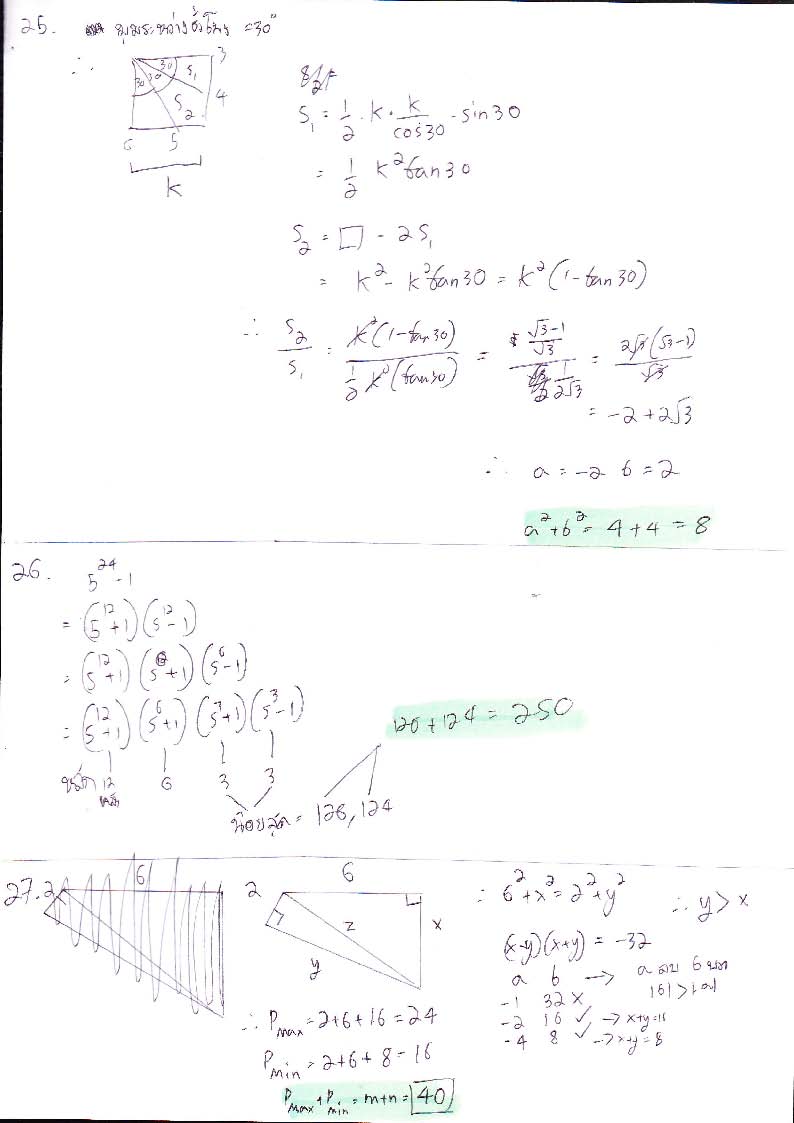 25. มุมระหว่างชั่วโมง = 30°
∴
3
30 30 30
S₁
S₂
4
6 5
k
S₁ = 1/2 · k · k/cos30 · sin30
= 1/2 k² tan30
S₂ = □ - 2S₁
= k² - k² tan30 = k² (1 - tan30)
∴ S₂/S₁ = k²(1-tan30) / 1/2 k²(tan30) = (√3-1)/√3 / 1/2√3 = 2√3(√3-1)/√3
= -2 + 2√3
∴ a = -2 b = 2
a² + b² = 4 + 4 = 8
26. 5²⁴ - 1
= (5¹² + 1) (5¹² - 1)
= (5¹² + 1) (5⁶ + 1) (5⁶ - 1)
= (5¹² + 1) (5⁶ + 1) (5³ + 1) (5³ - 1)
126 + 124 = 250
12 6 3 3
หลัก
น้อยสุด = 126, 124
27. 2 6
2 6
z x
y
∴ 6² + x² = 2² + y² ∴ y > x
(x-y)(x+y) = -32
a b → a ลบ b บวก
|b| > |a|
-1 32 ×
-2 16 ✓ → x+y=16
-4 8 ✓ → x+y=8
∴ Pmax = 2+6+16 = 24
Pmin = 2+6+8 = 16
Pmax + Pmin = m+n = 40